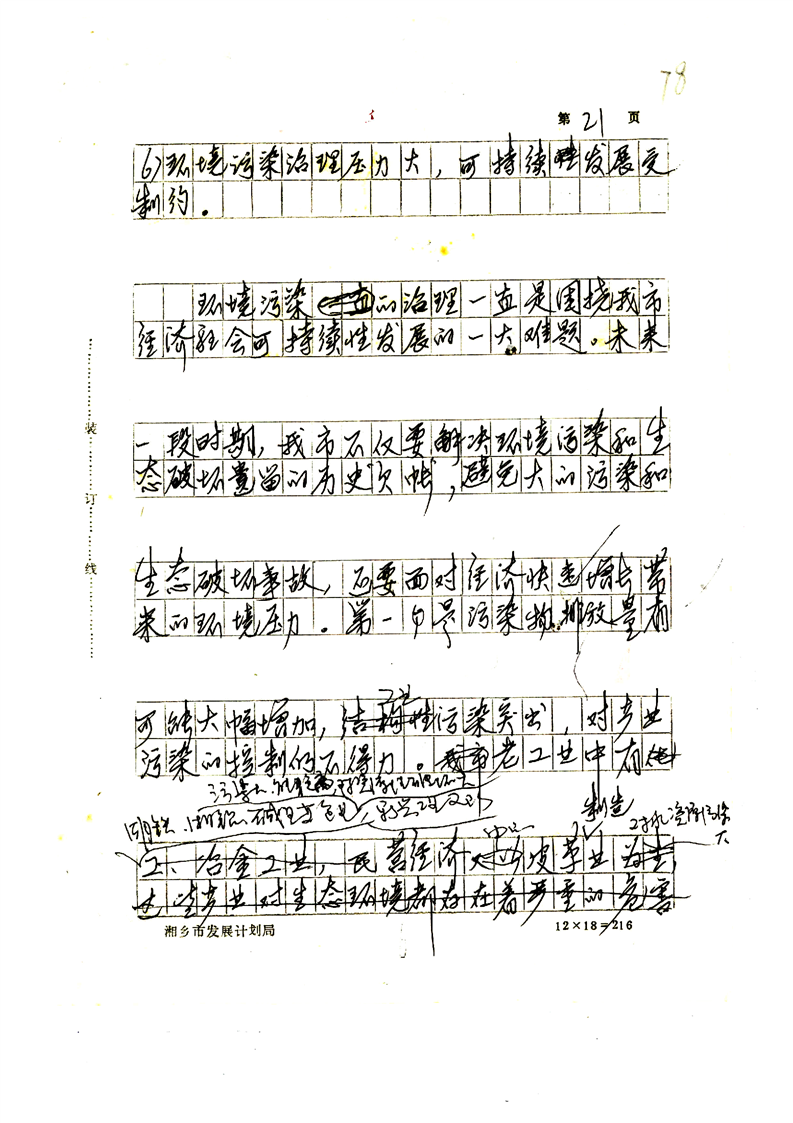 78
第 21 页
6)环境污染治理压力大，可持续性发展受
制约。
环境污染的治理一直是困挠我市
经济社会可持续性发展的一大难题。未来
一段时期，我市不仅要解决环境污染和生
态破坏遗留的历史欠帐，避免大的污染和
生态破坏事故，还要面对经济快速增长带
来的环境压力。第一个是污染物排放量有
可能大幅增加，结构性污染突出，对产业
污染的控制仍不得力。我市老工业中有
制造
工、冶金工业，民营经济 皮革业为主，
这些产业对生态环境都存在着严重的危害
装 订 线
湘乡市发展计划局
12×18=216